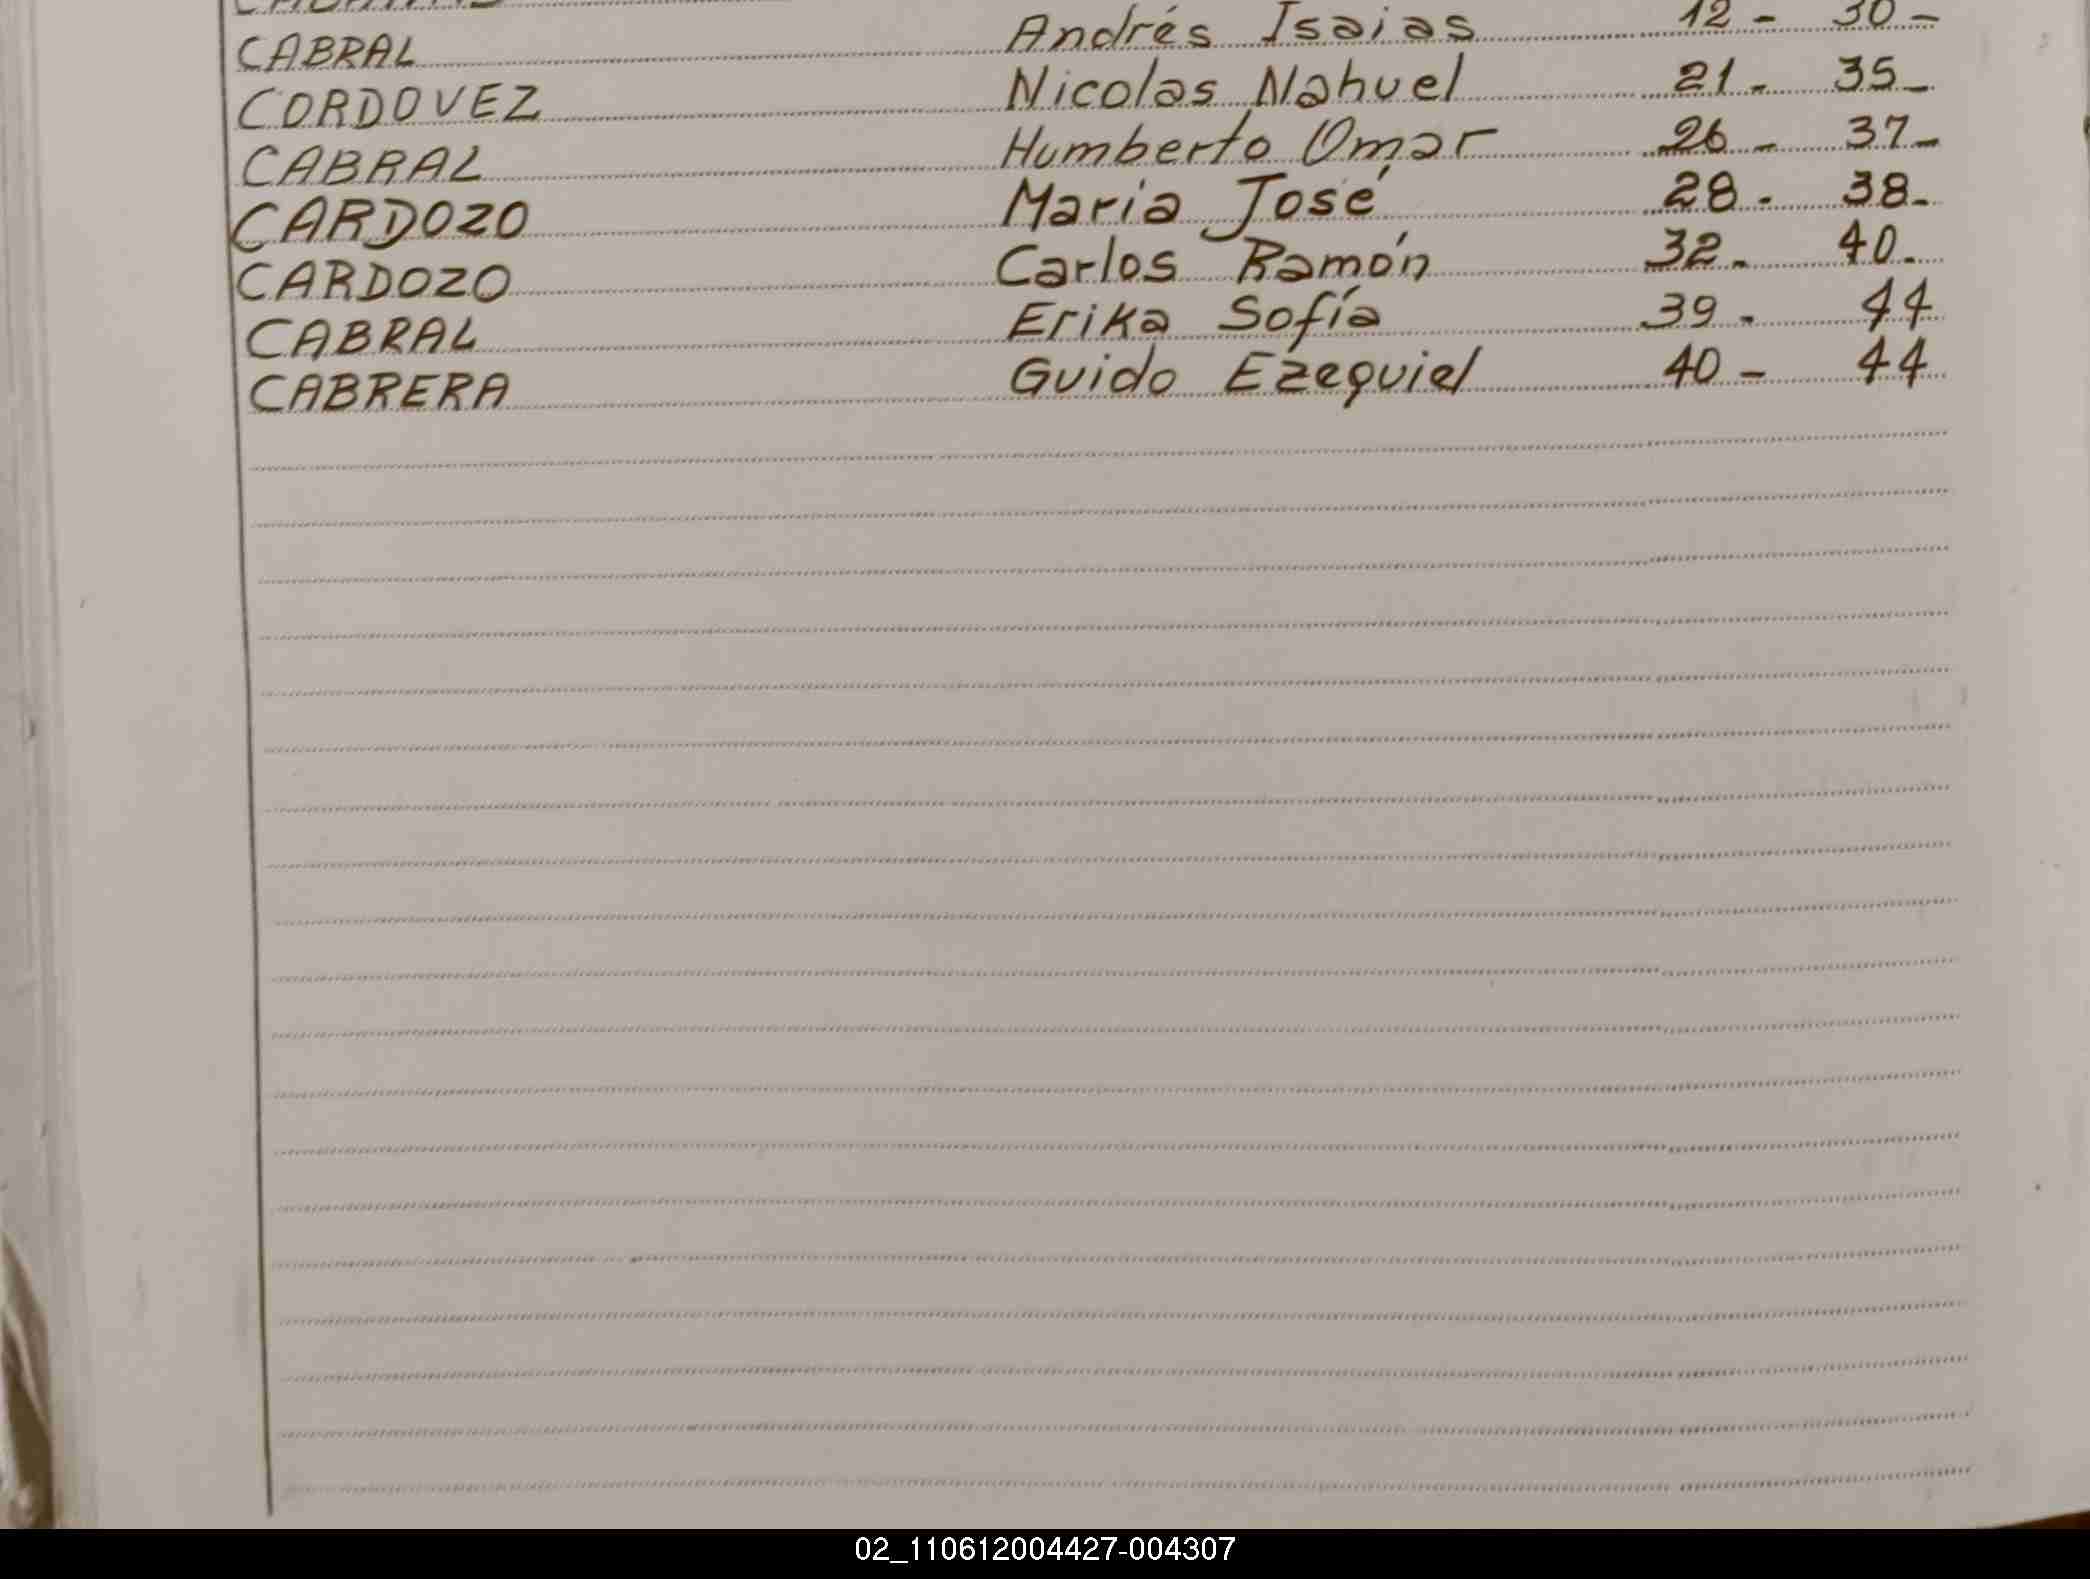 CABRAL Andrés Isaias 12 - 30 -
CORDOVEZ Nicolas Nahuel 21 - 35 -
CABRAL Humberto Omar 26 - 37 -
CARDOZO Maria José 28 - 38 -
CARDOZO Carlos Ramón 32 - 40 -
CABRAL Erika Sofía 39 - 44
CABRERA Guido Ezequiel 40 - 44
02_110612004427-004307